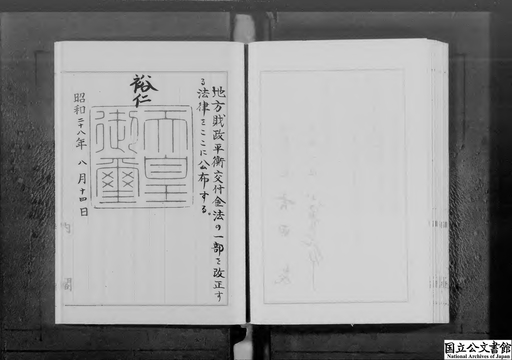 地方財政平衡交付金法の一部を改正す
る法律をここに公布する。
裕仁
天皇
御璽
昭和二十八年 八月十四日
内閣
国立公文書館
National Archives of Japan